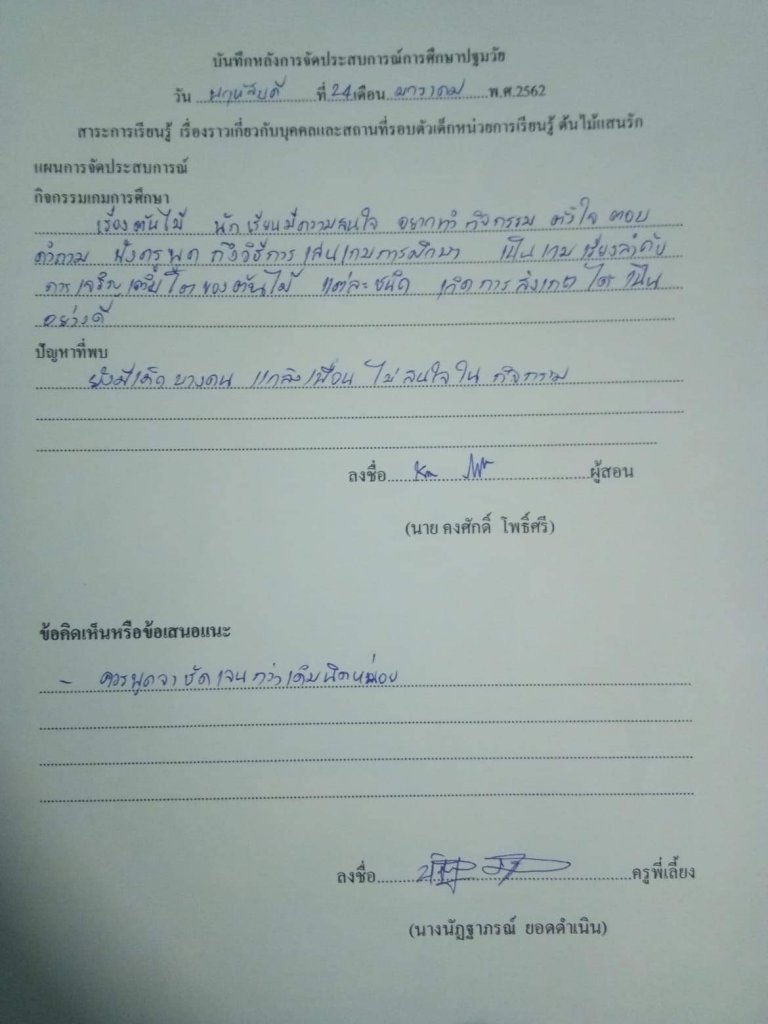 บันทึกหลังการจัดประสบการณ์การศึกษาปฐมวัย
วัน พฤหัสบดี ที่ 24 เดือน มกราคม พ.ศ.2562
สาระการเรียนรู้ เรื่องราวเกี่ยวกับบุคคลและสถานที่รอบตัวเด็กหน่วยการเรียนรู้ ต้นไม้แสนรัก
แผนการจัดประสบการณ์
กิจกรรมเกมการศึกษา
เรื่อง ต้นไม้ นักเรียนมีความสนใจ อยากทำ กิจกรรม ตั้งใจ ตอบ
คำถาม ฟังครูพูด ถึงวิธีการ เล่นเกมการศึกษา เป็นเกม เรียงลำดับ
การเจริญเติบโตของต้นไม้ แต่ละชนิด เกิดการสังเกต ได้เป็น
อย่างดี
ปัญหาที่พบ
ยังมีเด็กบางคน แกล้งเพื่อน ไม่สนใจใน กิจกรรม
ลงชื่อ ผู้สอน
(นาย คงศักดิ์ โพธิ์ศรี)
ข้อคิดเห็นหรือข้อเสนอแนะ
- ควรพูดจา ชัดเจน กว่าเดิมนิดหน่อย
ลงชื่อ ครูพี่เลี้ยง
(นางนัฏฐาภรณ์ ยอดดำเนิน)